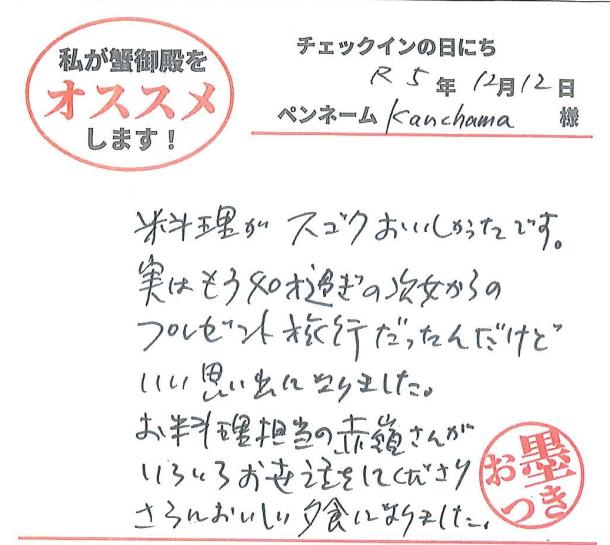 私が蟹御殿を
オススメ
します!
チェックインの日にち
R5年12月12日
ペンネーム Kanchama 様
料理がスゴクおいしかったです。
実はもう40才過ぎの次女からの
プレゼント旅行だったんだけど
いい思い出になりました。
お料理担当の赤嶺さんが
いろいろお世話をしてくださり
さらにおいしい夕食になりました。
お墨
つき